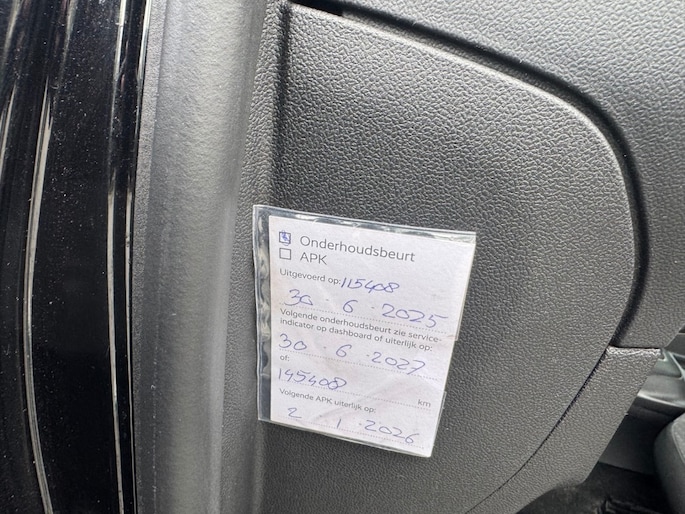 Onderhoudsbeurt
APK
Uitgevoerd op: 115408
30 . 6 . 2025
Volgende onderhoudsbeurt zie service-
indicator op dashboard of uiterlijk op:
30 . 6 . 2027
of:
145408 km
Volgende APK uiterlijk op:
2 . 1 . 2026